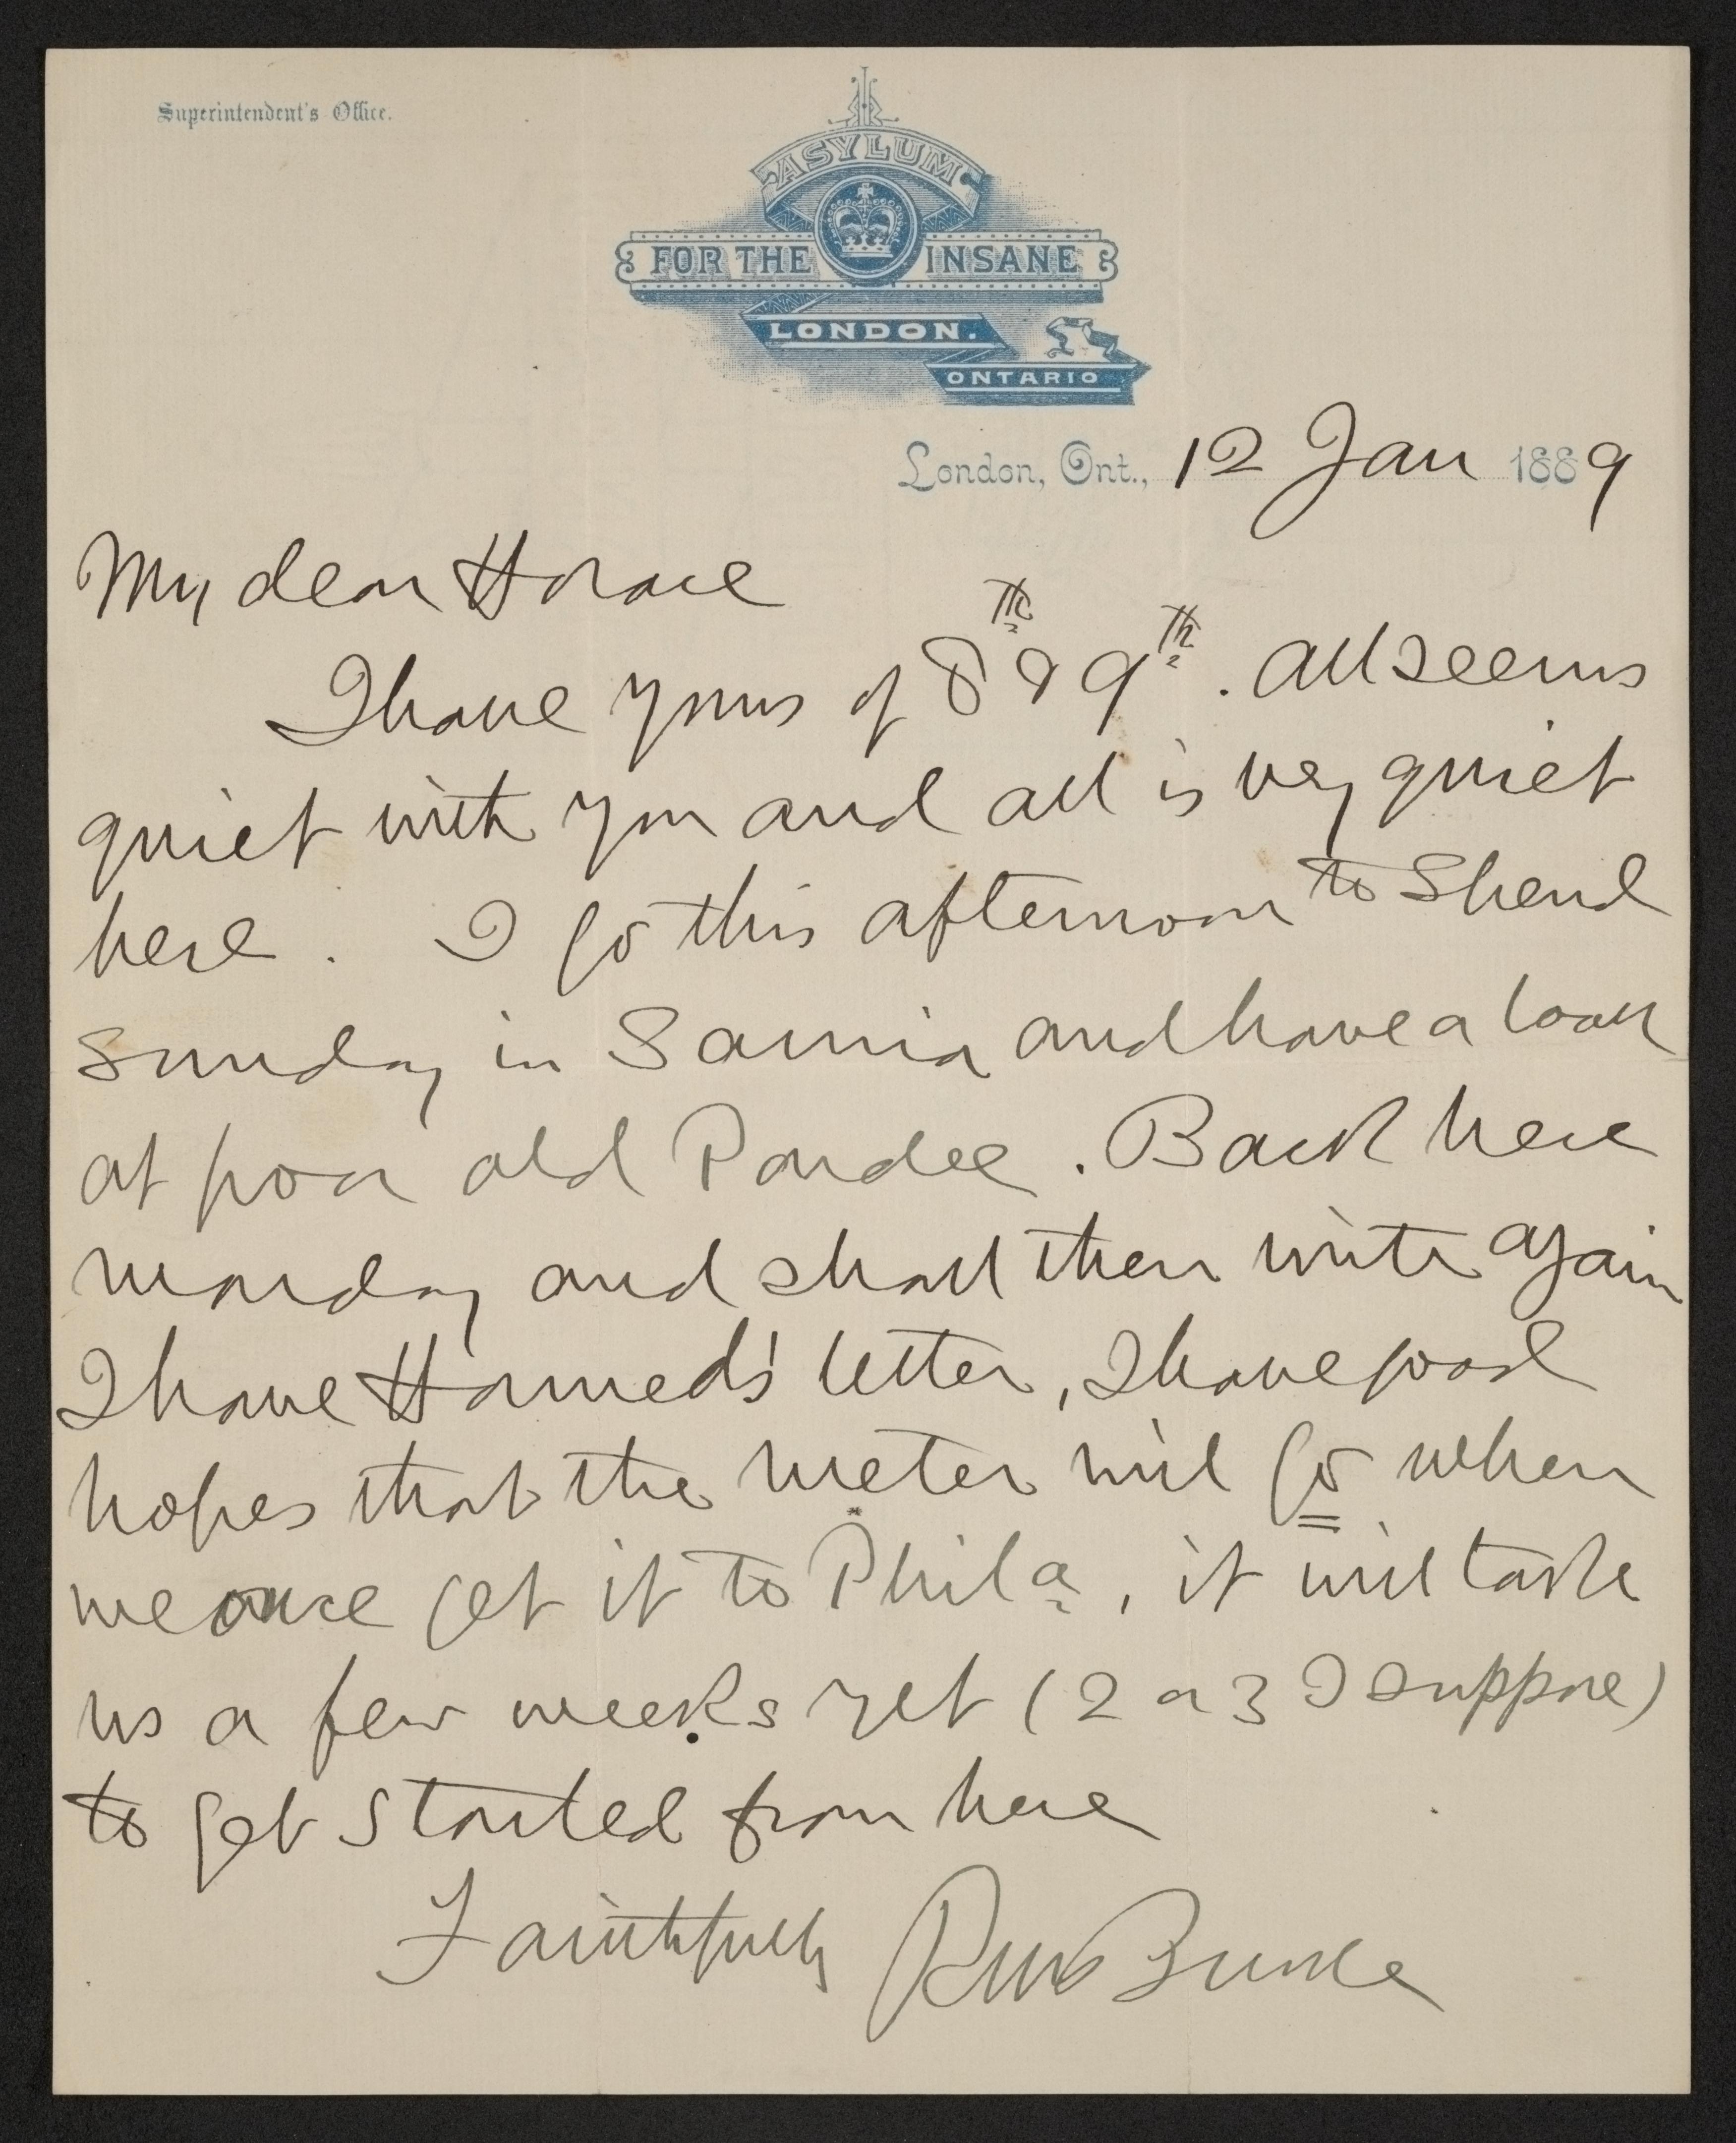 Superintendent's Office.
ASYLUM
FOR THE INSANE
LONDON.
ONTARIO
London, Ont., 12 Jan 1889
My dear Horace
I have yours of 8th & 9th. All seems
quiet with you and all is very quiet
here. I go this afternoon to spend
Sunday in Sarnia and have a look
at poor old Pardee. Back here
monday and shall then write again
I have Harned's letter, I have good
hopes that the meter will go when
we once get it to Phila, it will take
us a few weeks yet (2 or 3 I suppose)
to get started from here
Faithfully RM Bucke